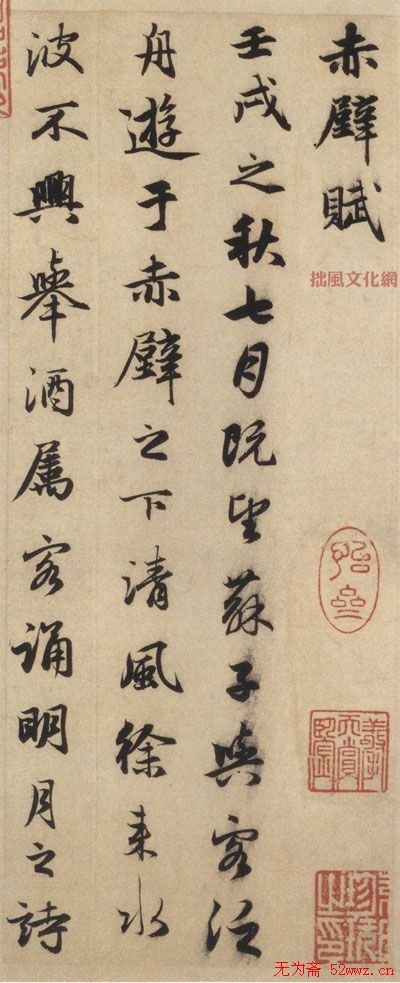 赤壁賦
壬戌之秋七月既望蘇子與客泛
舟遊于赤壁之下清風徐来水
波不興舉酒属客誦明月之詩
拙風文化網
无为斋 52wwz.cn